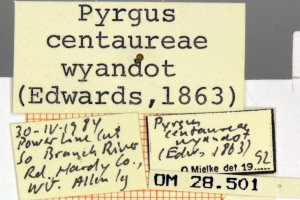 Pyrgus
centaureae
wyandot
(Edwards,1863)
30-IV-1984
Powerline Cut
So Branch River
Rd. Hardy Co.,
WV. Allen lg
Pyrgus
centaureae
wyandot
(Edws, 1863)
O Mielke det. 19..... 92
OM 28.501